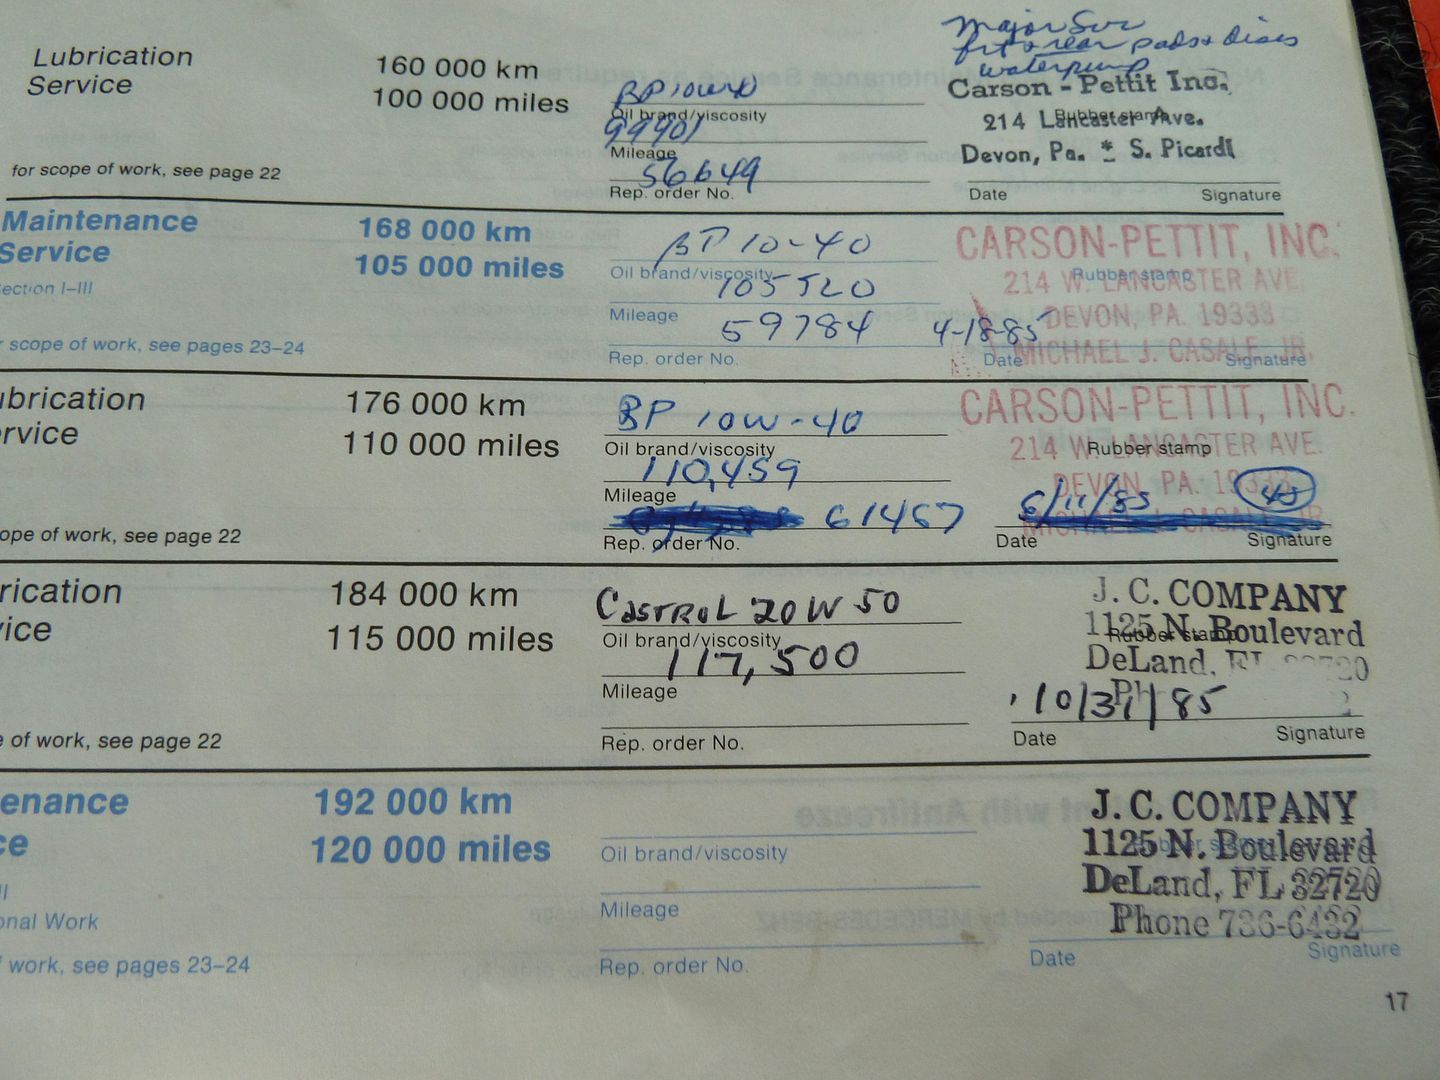 Major Svc
frt & rear pads & discs
waterpump
Lubrication
Service
160 000 km
100 000 miles
BP 10W40
Oil brand/viscosity
99901
Mileage
56649
Rep. order No.
Carson - Pettit Inc.
Rubber stamp
214 Lancaster Ave.
Devon, Pa. * S. Picardi
Date
Signature
for scope of work, see page 22
Maintenance
Service
ection I–III
168 000 km
105 000 miles
BP 10-40
Oil brand/viscosity
105520
Mileage
59784
Rep. order No.
CARSON-PETTIT, INC.
Rubber stamp
214 W. LANCASTER AVE.
DEVON, PA. 19333
MICHAEL J. CASALE JR.
4-18-85
Date
Signature
r scope of work, see pages 23–24
ubrication
rvice
176 000 km
110 000 miles
BP 10W-40
Oil brand/viscosity
110,459
Mileage
61457
Rep. order No.
CARSON-PETTIT, INC.
Rubber stamp
214 W. LANCASTER AVE.
DEVON, PA. 19333
MICHAEL J. CASALE JR.
6/11/85
Date
Signature
ope of work, see page 22
rication
ice
184 000 km
115 000 miles
CASTROL 20W50
Oil brand/viscosity
117,500
Mileage
Rep. order No.
J. C. COMPANY
Rubber stamp
1125 N. Boulevard
DeLand, FL
10/31/85
Date
Signature
e of work, see page 22
enance
ce
onal Work
192 000 km
120 000 miles
Oil brand/viscosity
Mileage
Rep. order No.
J. C. COMPANY
1125 N. Boulevard
DeLand, FL 32720
Phone 736-6432
Date
Signature
work, see pages 23–24
17